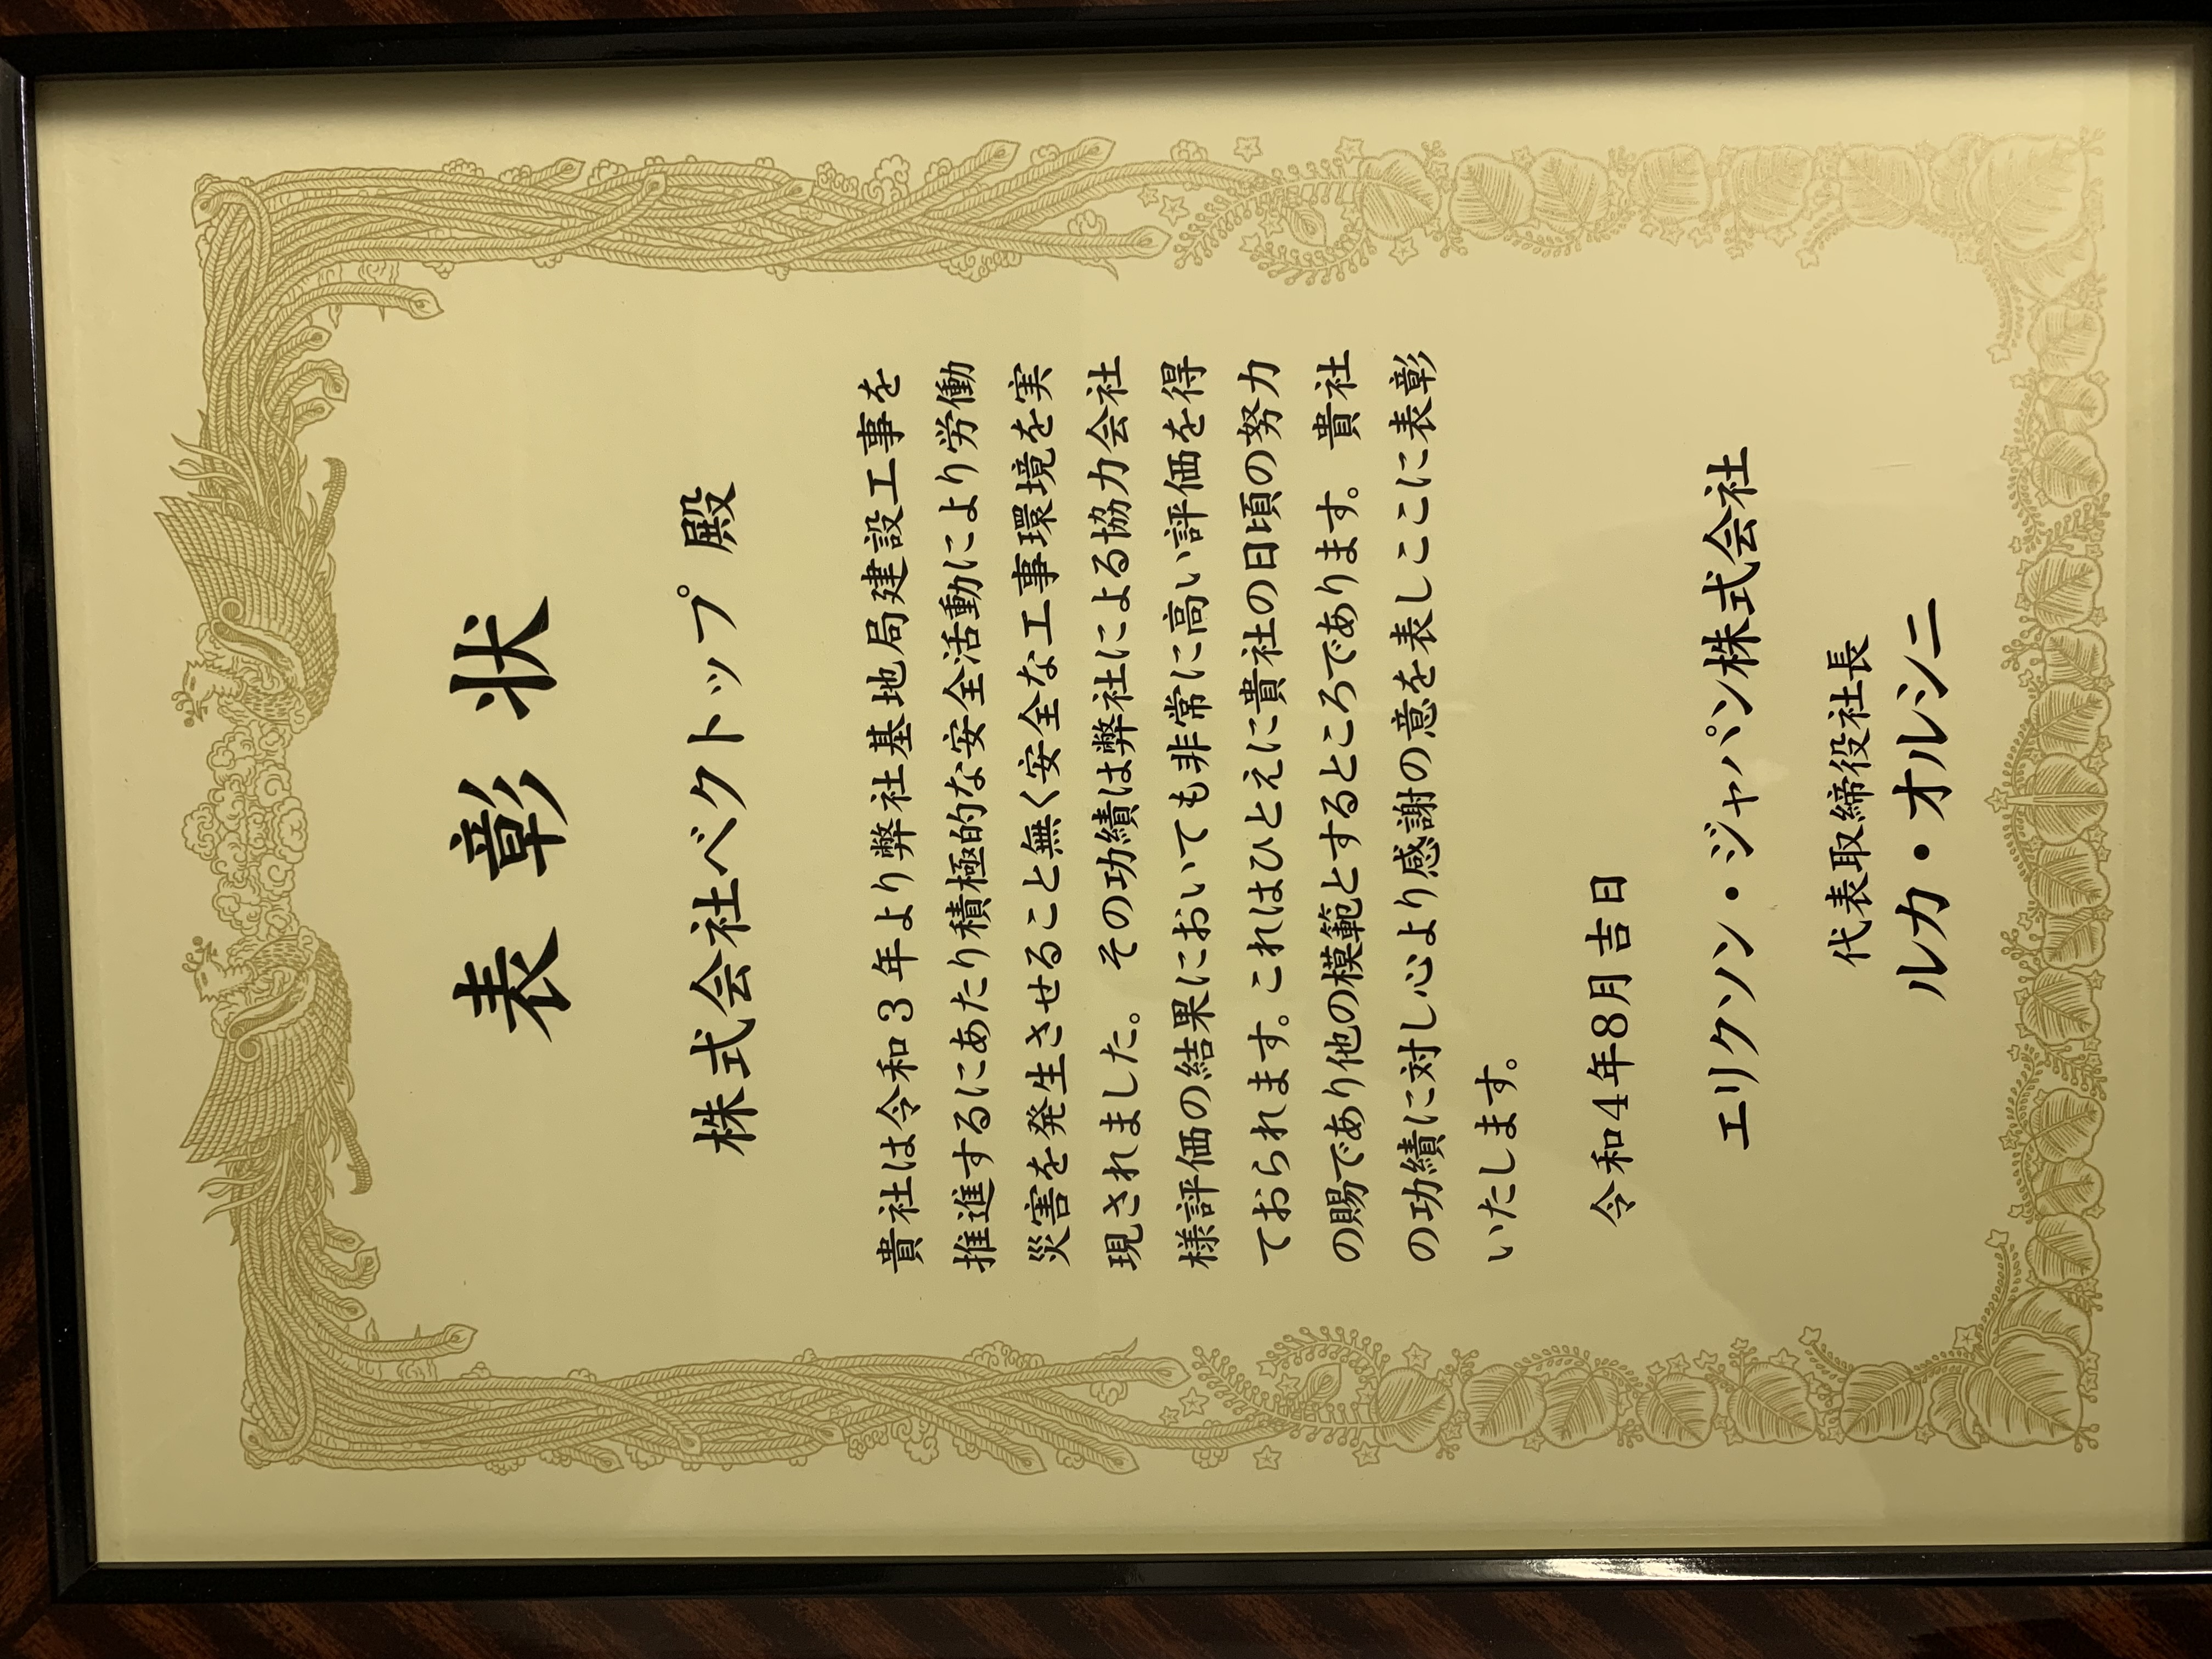 表彰状
株式会社ベクトップ 殿
貴社は令和3年より弊社基地局建設工事を
推進するにあたり積極的な安全活動により労働
災害を発生させること無く安全な工事環境を実
現されました。 その功績は弊社による協力会社
様評価の結果においても非常に高い評価を得
ておられます。これはひとえに貴社の日頃の努力
の賜であり他の模範とするところであります。貴社
の功績に対し心より感謝の意を表しここに表彰
いたします。
令和4年8月吉日
エリクソン・ジャパン株式会社
代表取締役社長
ルカ・オルシニ